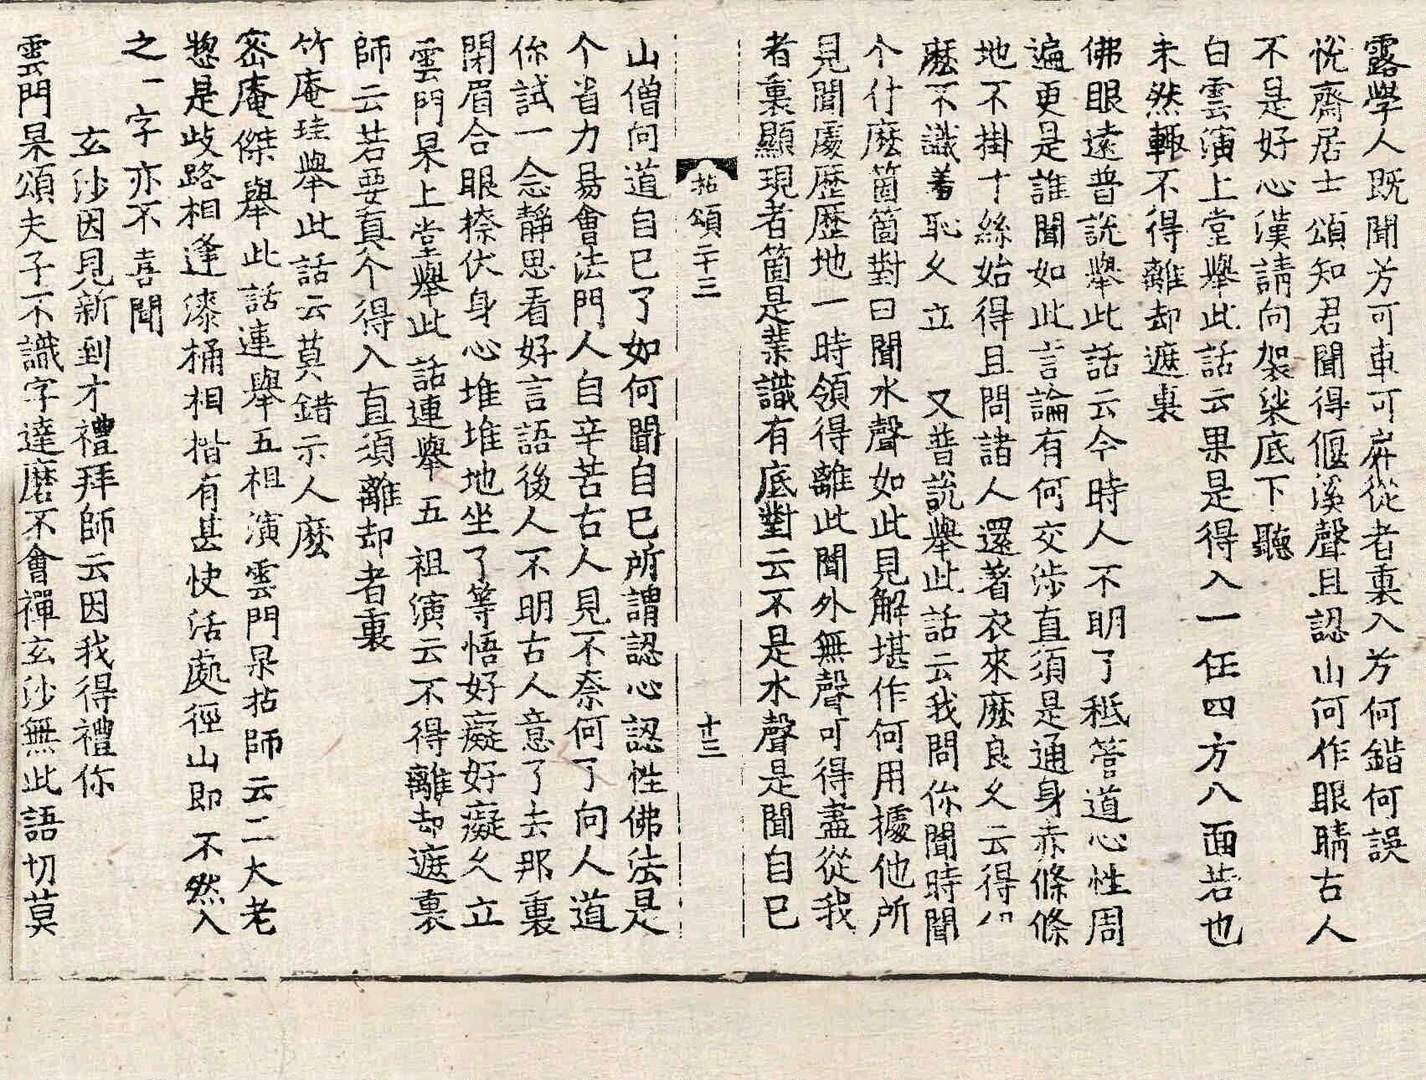 露學人旣聞芳可車可䢖從者裏入芳何鍇何誤
悅齋居士 頌知君聞得偃溪聲且認山何作眼睛古人
不是好心漢請向袈裟底下聽
白雲演上堂擧此話云果是得入一任四方八面若也
未然輙不得離却遮裏
佛眼遠普說擧此話云今時人不明了秪管道心性周
遍更是誰聞如此言論有何交涉直須是通身赤條條
地不掛寸絲始得且問諸人還著衣來麽良久云得
麽不識羞恥久立 又普說擧此話云我問你聞時聞
个什麽箇箇對曰聞水聲如此見解堪作何用據他所
見聞處歷歷地一時領得離此聞外無聲可得盡從我
者裏顯現者箇是業識有底對云不是水聲是聞自已
拈頌二十三 十三
山僧向道自已了如何聞自已所謂認心認性佛法是
个省力易會法門人自辛苦古人見不柰何了向人道
你試一念靜思看好言語後人不明古人意了去那裏
閉眉合眼㮈伏身心堆堆地坐了等悟好癡好癡久立
雲門杲上堂擧此話連擧五祖演云不得離却遮裏
師云若要眞个得入直須離却者裏
竹庵珪擧此話云莫錯示人麽
密庵傑擧此話連擧五祖演雲門杲拈師云二大老
惣是歧路相逢漆桶相揩有甚快活處徑山即不然入
之一字亦不喜聞
玄沙因見新到才禮拜師云因我得禮你
雲門杲頌夫子不識字達磨不會禪玄沙無此語切莫